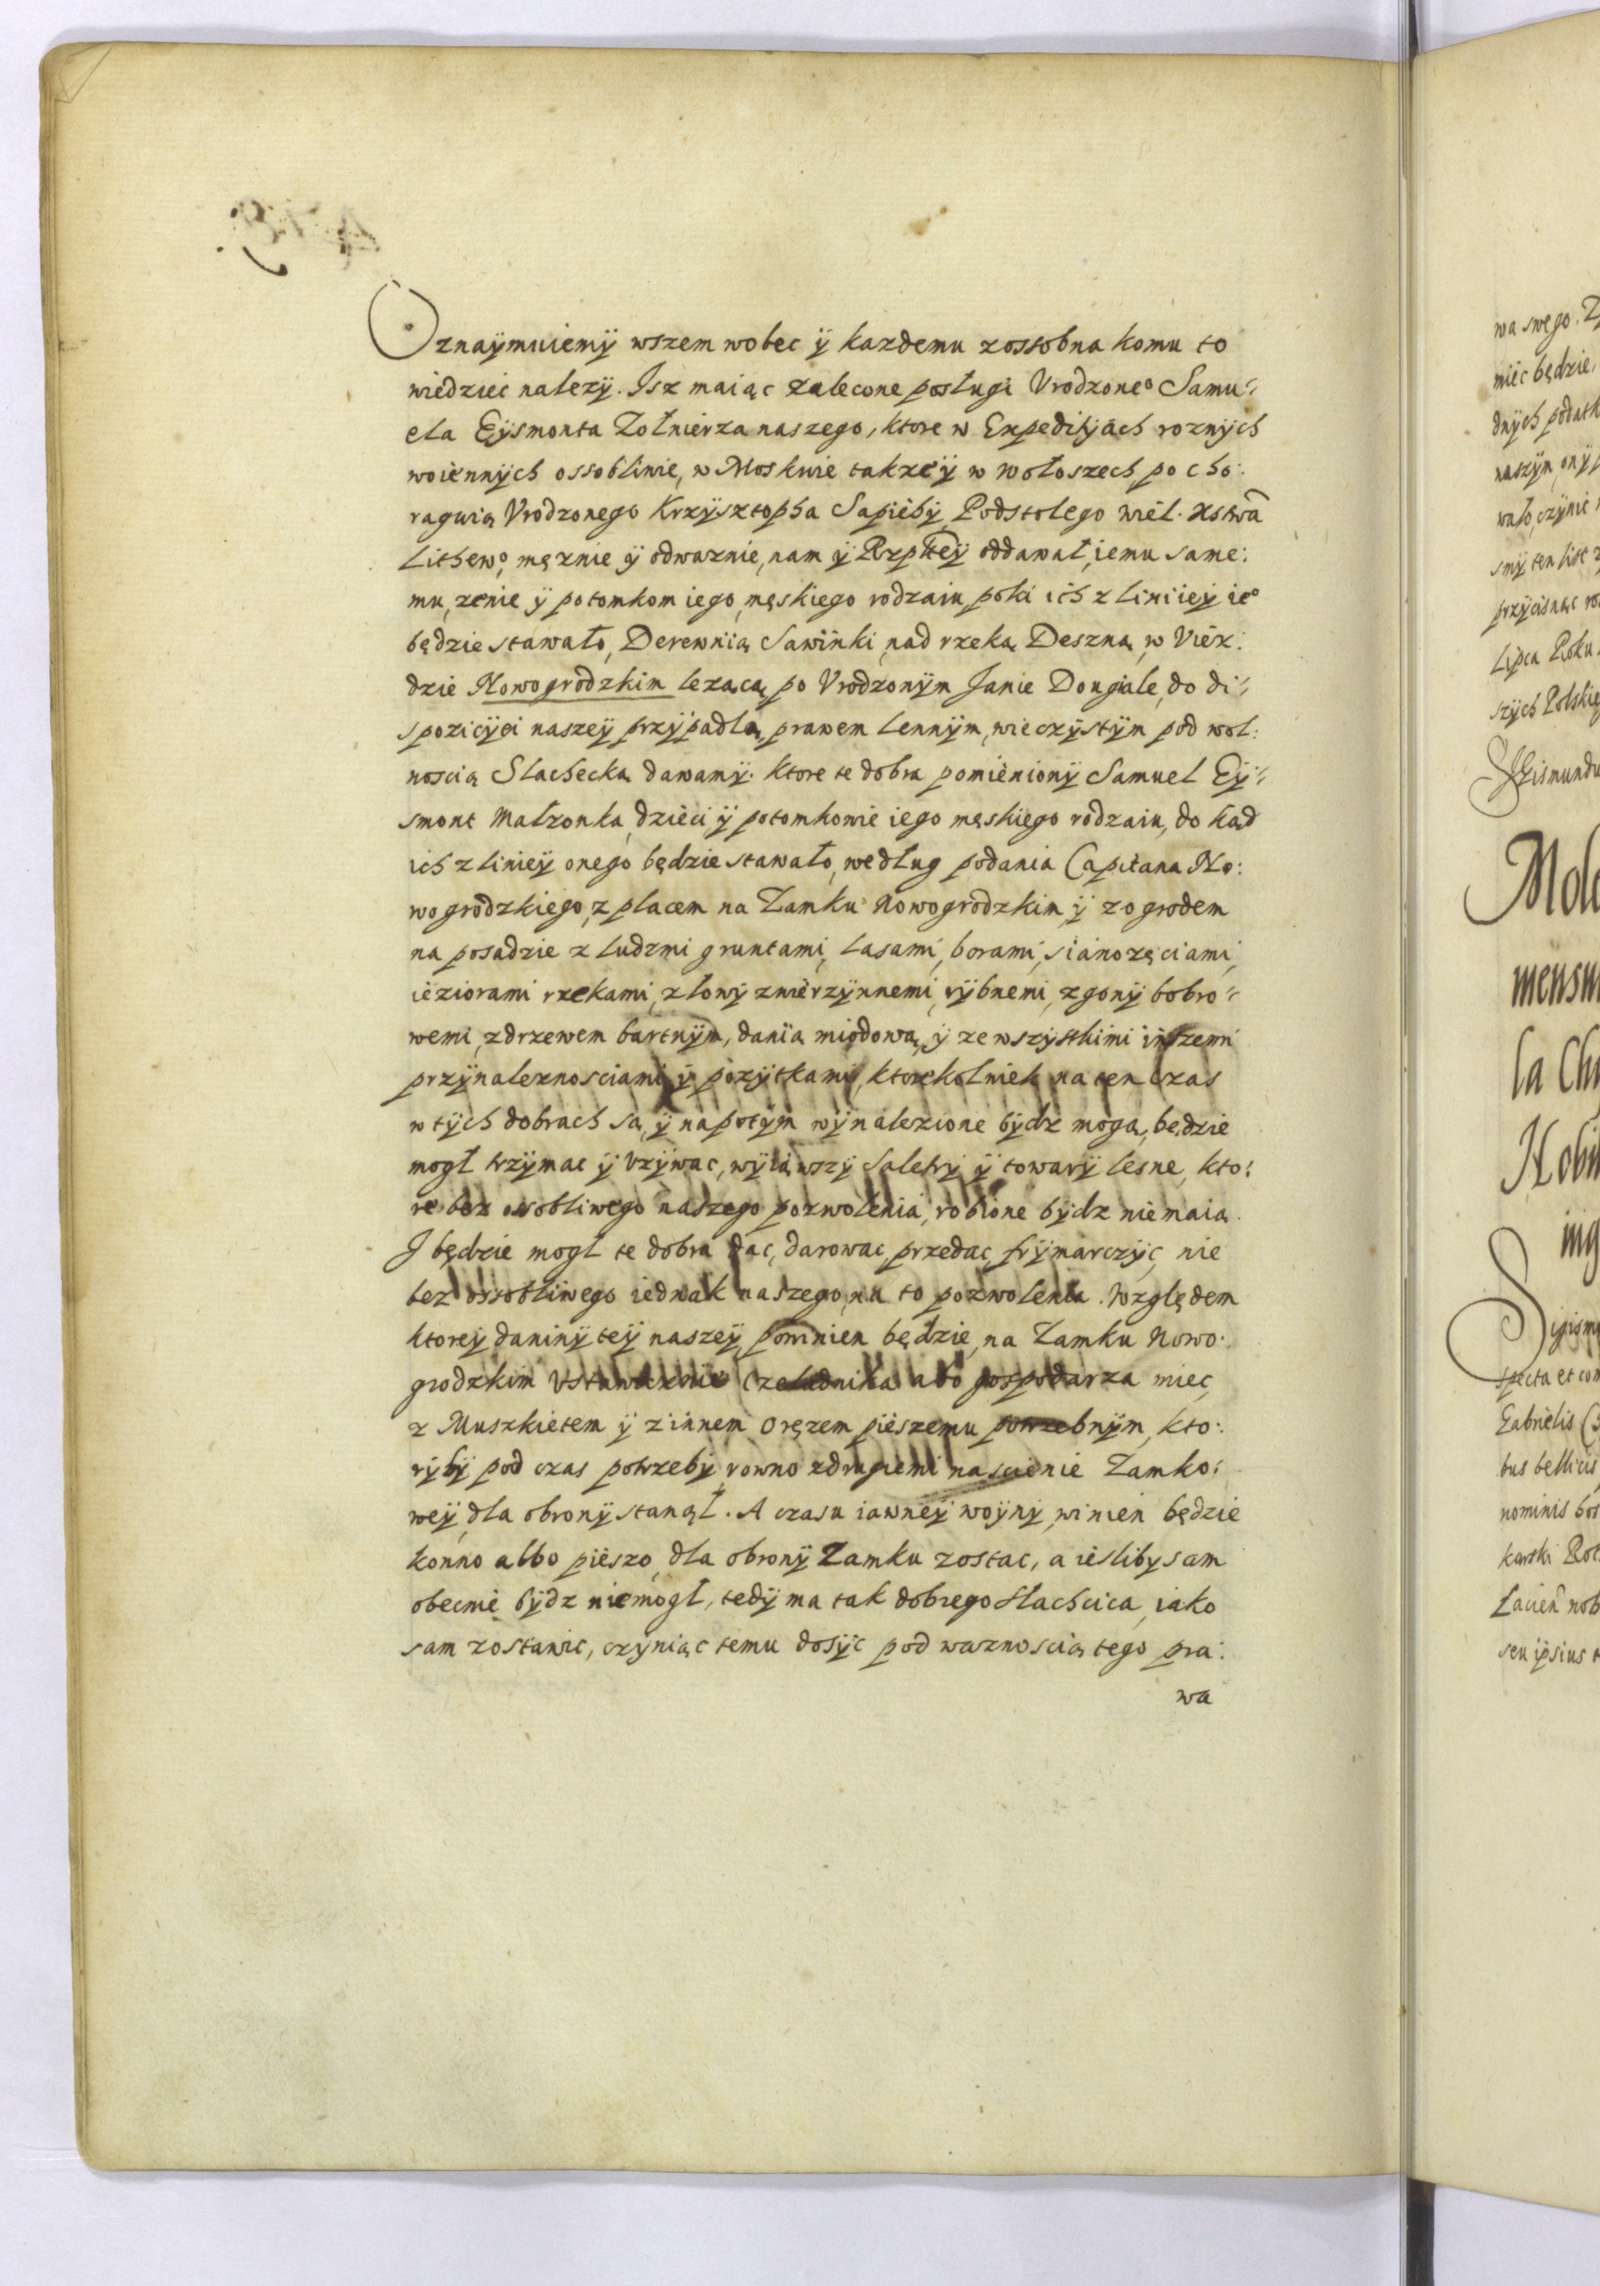 Oznaÿmuiemÿ wszem wobec ÿ kazdemu zossobna komu to
wiedziec nalezÿ. Isz maiąc zalecone posługi Vrodzoneº Samu⹀
ela Eÿsmonta Zołnierza naszego, ktore w Expeditÿach roznÿch
woiennÿch ossobliwie, w Moskwie takzeÿ w Wołoszech po cho:
ragwią Vrodzonego Krzÿsztopha Sapiehÿ, Podstolego wiel. Xstwa
Lithewº, męznie ÿ odwaznie, nam ÿ Rzplteÿ oddawał, iemu same:
mu, zenie ÿ potomkom iego, męskiego rodzaiu, poki ich z Liniieÿ ieº
będzie stawało, Derewnią Sawinki, nad rzeką Deszną, w Viez:
dzie Nowogrodzkim lezącą, po Vrodzonÿm Janie Dougiale, do di⹀
spozicÿei naszeÿ przÿpadłą, prawem lennÿm, wieczÿstÿm pod wol:
noscią Slachecką dawamÿ. ktore te dobra pomienionÿ Samuel Eÿ⹀
smont Małzonka, dzieci ÿ potomkowie iego męskiego rodzaiu, do kąd
ich z liniey onego będzie stawało, według podania Capitana No:
wogrodzkiego, z placem na Zamku Nowogrodzkim, ÿ z ogrodem
na posadzie z ludzmi gruntami, lasami, borami, sianozęciami,
ieziorami rzekami, z łowÿ zwierzÿnnemi, rÿbnemi, z gonÿ bobro⹀
wemi, z drzewem bartnÿm, danią miodową, ÿ ze wszÿstkimi inszemi
przÿnaleznosciami ÿ pozÿtkami, ktorekolwiek na ten czas
w tÿch dobrach są, ÿ napotÿm wÿnalezione bÿdz mogą, będzie
mogł trzÿmac ÿ Vzÿwac, wÿiąwszÿ Saletrÿ ÿ towarÿ lesne, kto:
re bez ossobliwego naszego pozwolenia, robione bÿdz nie maią.
I będzie mogł te dobra dac, darowac, przedac, frÿmarczÿc, nie
bez ossobliwego iednak naszego, na to pozwolenia. Względem
ktoreÿ daninÿ teÿ naszeÿ, powinien będzie, na Zamku Nowo:
grodzkim Vstawicznie Czeladnika abo gospodarza miec,
z Muszkietem ÿ z innem oręzem pieszemu potrzebnÿm, kto:
rÿbÿ pod czas potrzebÿ, rowno z drugiemi na scienie Zamko:
weÿ, dla obronÿ stanął. A czasu iawneÿ woÿnÿ, winien będzie
konno albo pieszo, dla obronÿ Zamku zostac, a iesliby sam
obecnie bÿdz niemogł, tedÿ ma tak dobrego slachcica, iako
sam zostawic, czÿniąc temu dosÿc pod waznoscią tego pra:
wa
wa swego.
miec będzie,
dnÿch podatk
naszÿm, onÿ
wało, czÿnic
smÿ ten list
przÿcisnąc
Lipca Roku
szÿch Polskie
mensu
la
Sigism
specta et con
Gabrielis
bus bellicis
nominis
seu ipsius